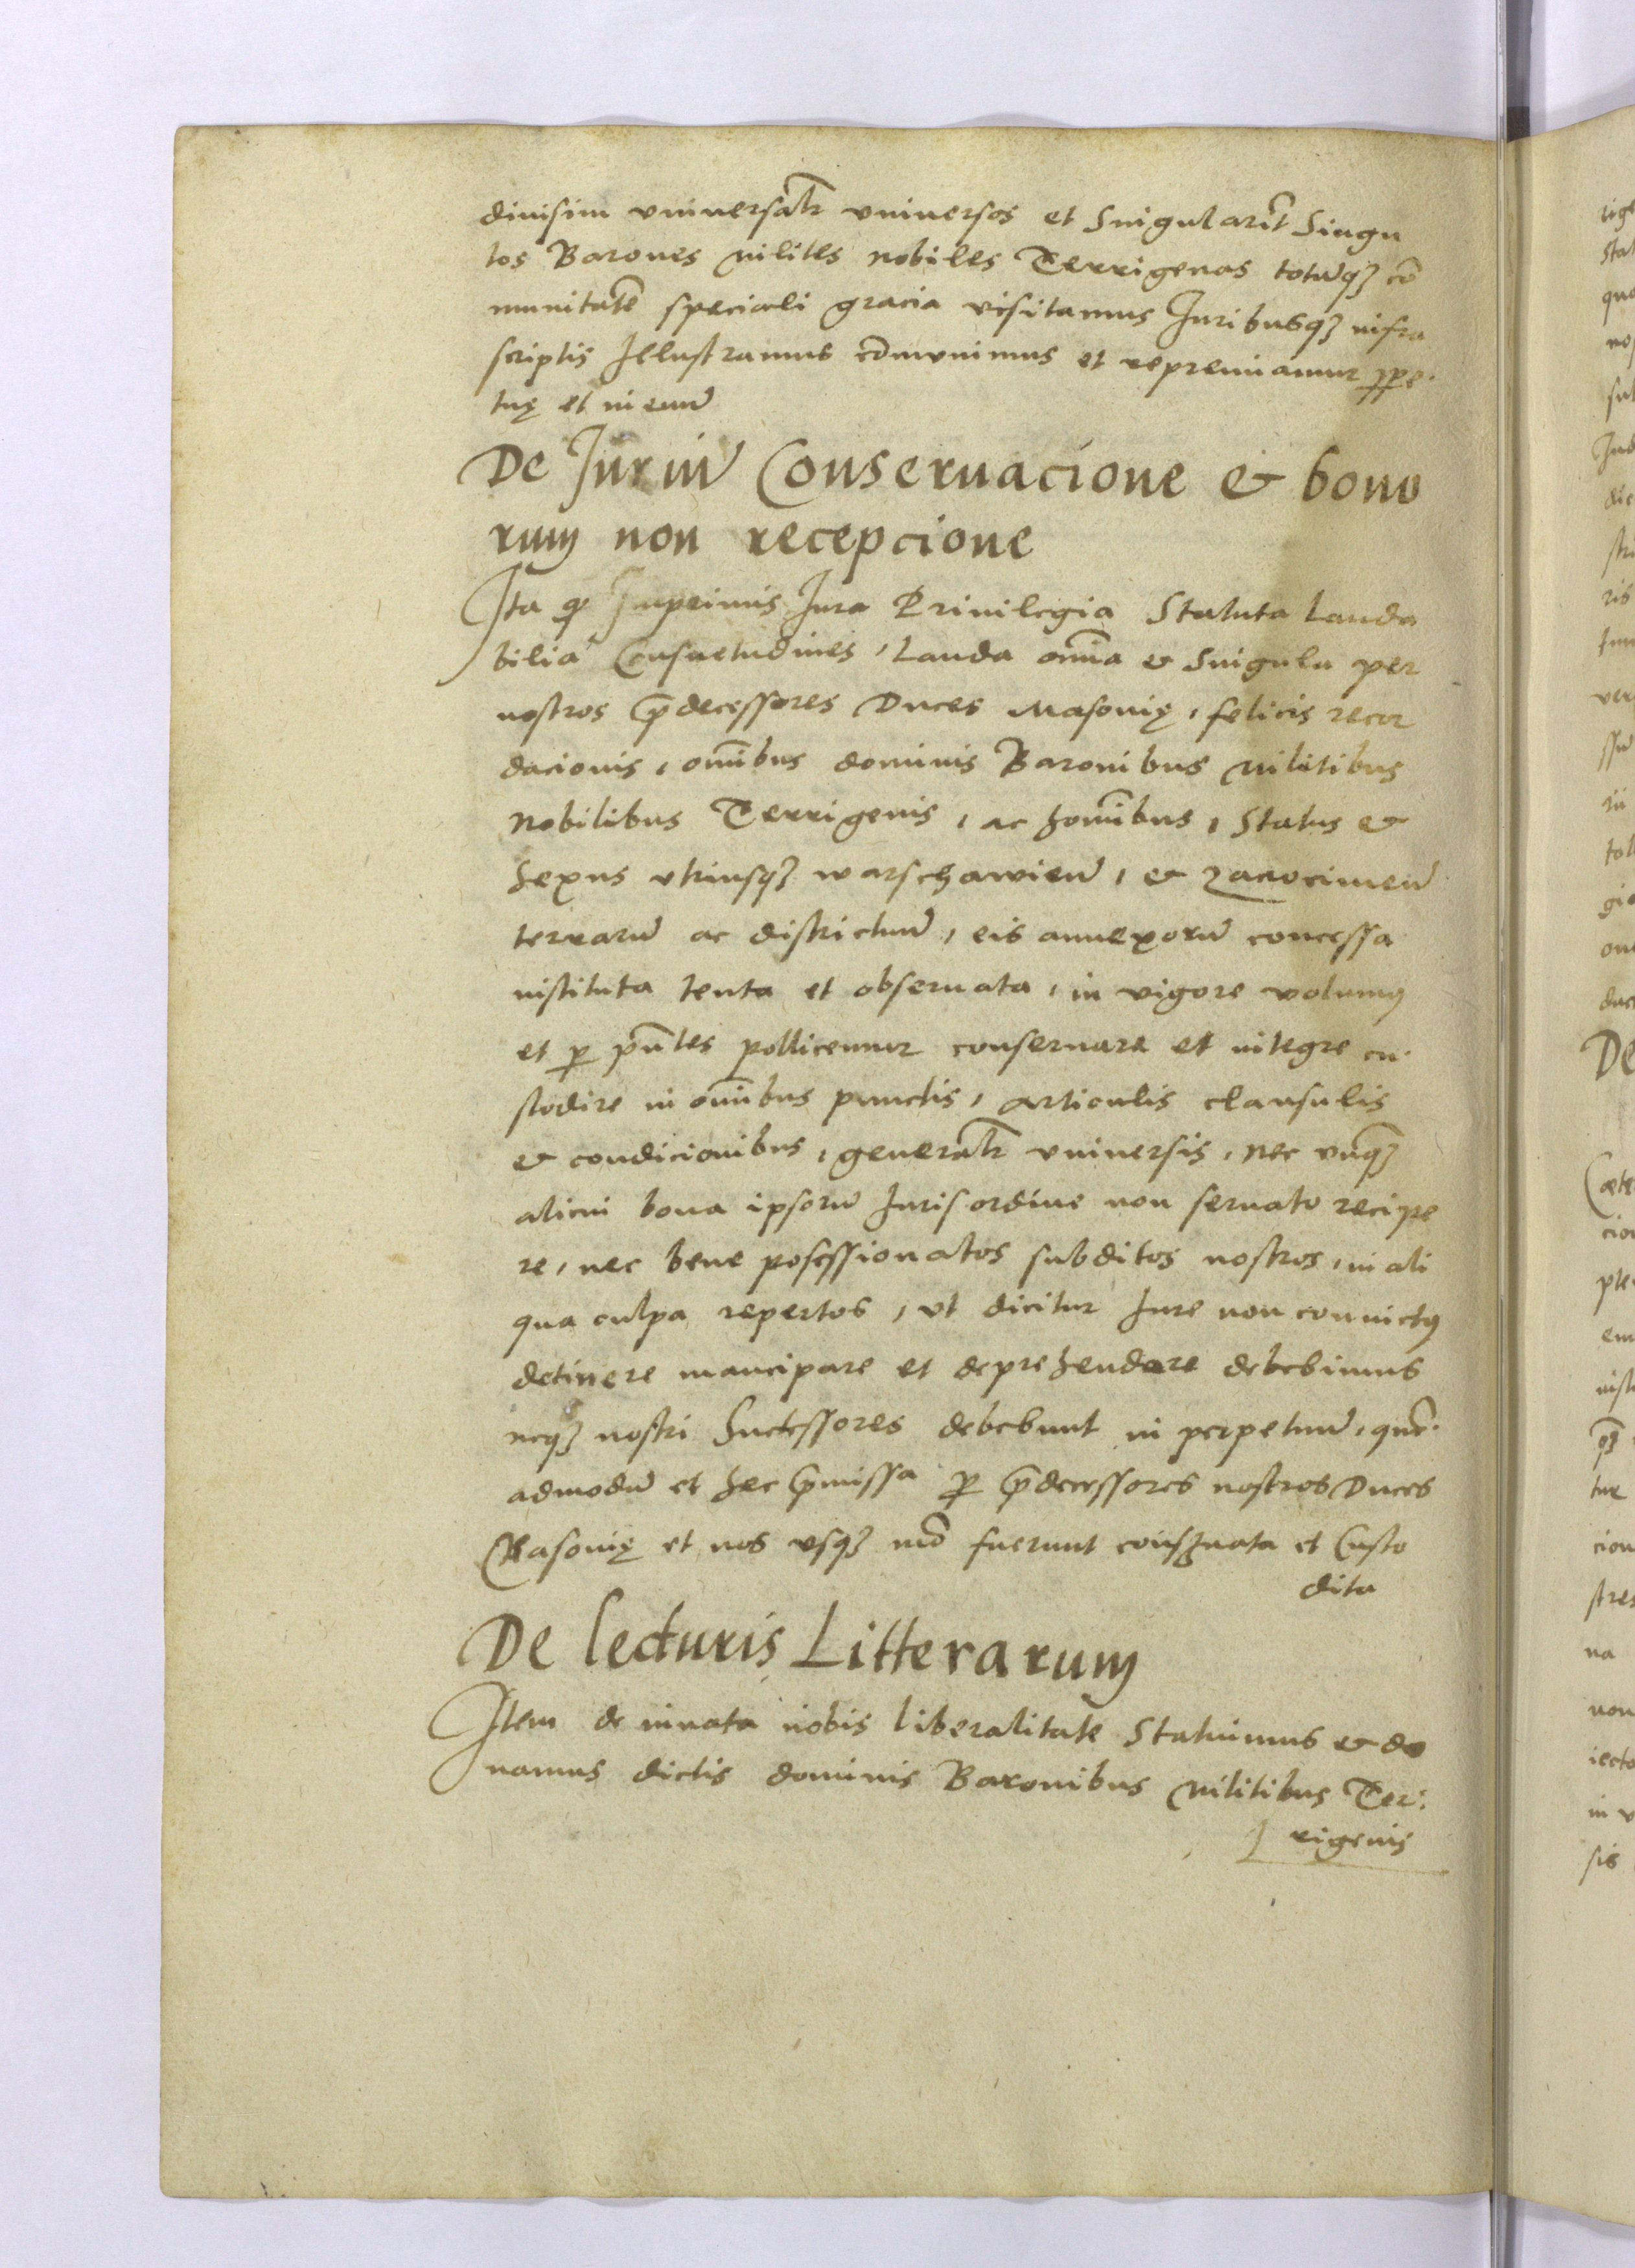 diuisim vniuersalr̄ vniuersos et Singularit̄ Singu
los Barones Milites nobiles Terrigenas totūqꝫ cō
munitatē speciali gracia visitamus Juribusqꝫ infra
scriptis Jllustramus cōmunimus et repremiamur ꝑpe
tuę et in euū
De Juriū Conseruacione & bono
rum non recepcione
Jta ꝙ Jmprimis Jura Priuilegia Statuta Lauda
bilia Consuetudines, Lauda oīa & Singula per
nostros p̄decessores Duces Masouię, felicis recor
dacionis, oībus dominis Baronibus Militibus
Nobilibus Terrigenis, ac hoībus, Status &
Sexus vtriusqꝫ warschawień, & zacrocimeń
terrarū ac districtuū, eis annexorū concessa
instituta tenta et obseruata, in vigore volumꝯ
et ꝑ pn̄tes pollicemur conseruare et integre cu
stodire in oībus punctis, Articulis clausulis
& condicionibus, generalr̄ vniuersis, nec vnqꝫ
alicui bona ipsorū Juris ordine non seruato recipe
re, nec bene possessionatos subditos nostros, in ali
qua culpa repertos, vt dicitur Jure non conuictꝯ
detinere mancipare et deprehendere debebimus
neqꝫ nostri Successores debebunt in perpetuū, quē
admodū et hec p̄missa ꝑ p̄decessores nostros Duces
Masouię et nos vsqꝫ mō fuerunt consignata et Custo
dita
De lecturis Litterarum
Jtem de innata nobis liberalitate Statuimus & do
namus dictis dominis Baronibus Militibus Ter
rigenis